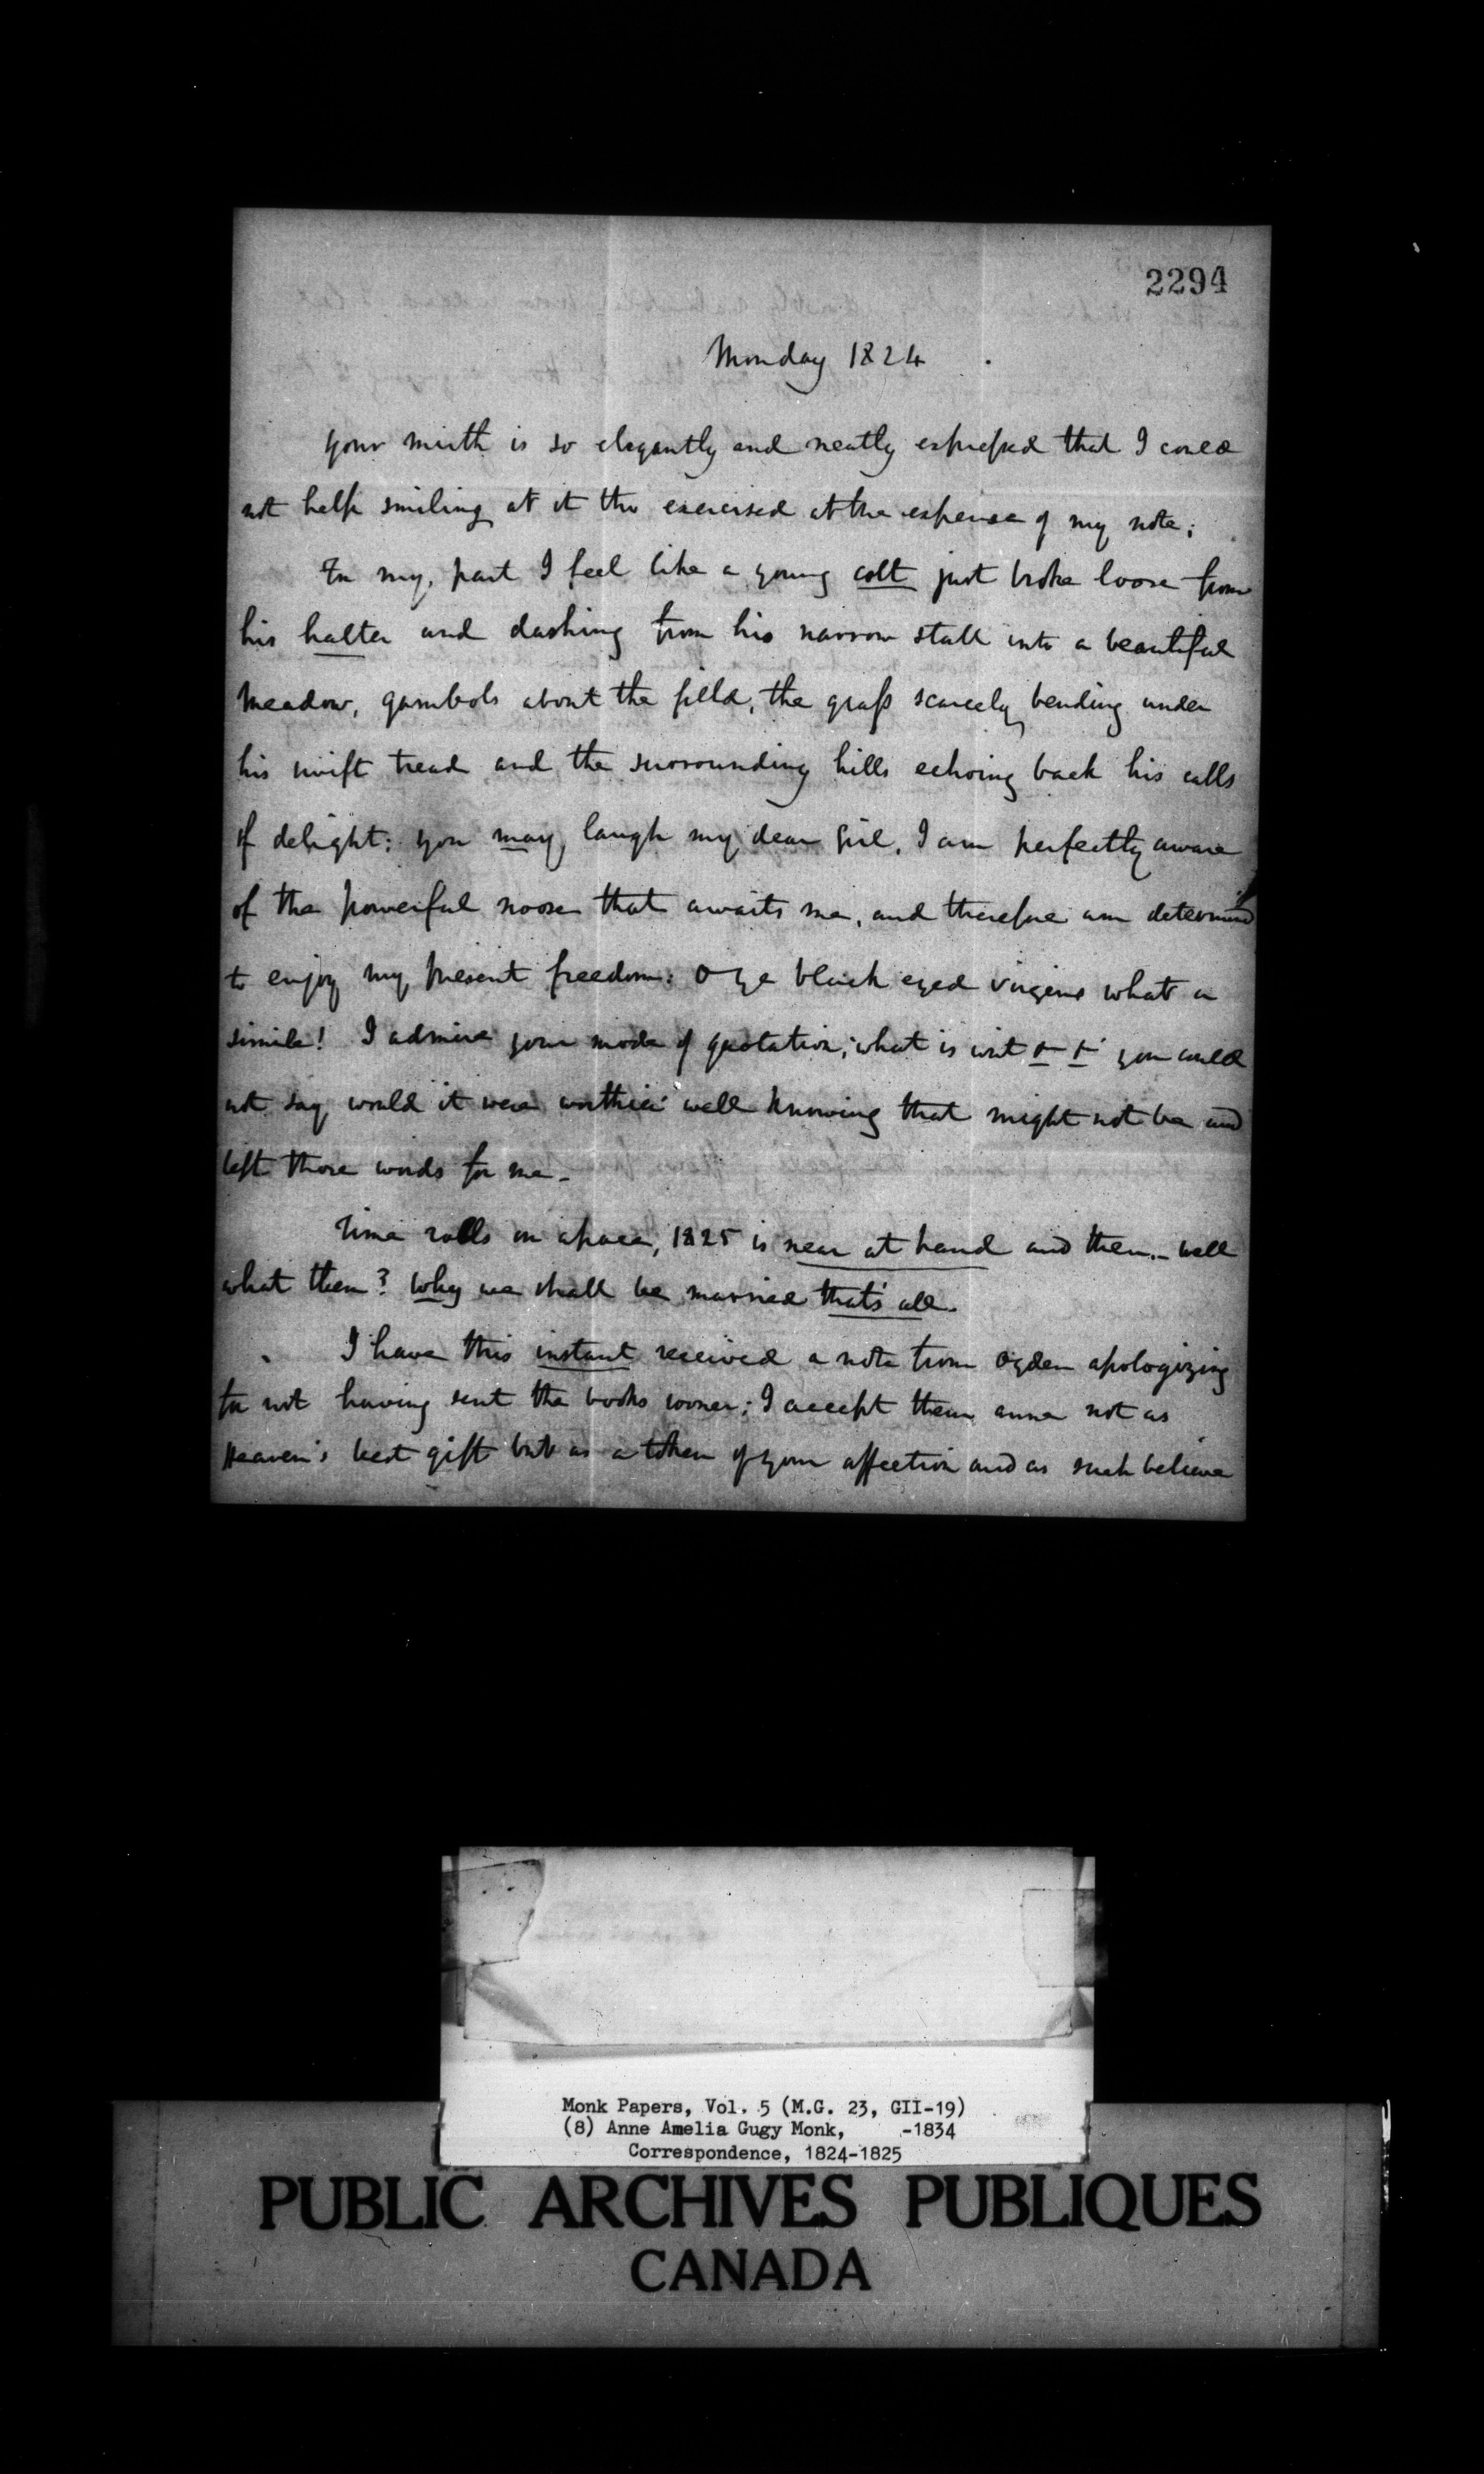 2294
Monday 1824
Your mirth is so elegantly and neatly expressed that I could
not help smiling at it tho exercised at the expense of my note;
For my part I feel like a young colt just broke loose from
his halter and dashing from his narrow stall into a beautiful
meadow, gambols about the field, the grass scarcely bending under
his swift tread and the surrounding hills echoing back his calls
of delight; you may laugh my dear girl, I am perfectly aware
of the powerful noose that awaits me, and therefore am determined
to enjoy my present freedom: O ye black eyed virgins what a
simile! I admire your mode of quotation; what is writ you could
not say would it were worthier well knowing that might not be and
left those words for me _
Time rolls on apace, 1825 is near at hand and then _ well
what then? Why we shall be married that's all.
I have this instant received a note from Ogden apologizing
for not having sent the books sooner; I accept them anne not as
Heaven's best gift but as a token of your affection and as such believe
Monk Papers, Vol. 5 (M.G. 23, GII-19)
(8) Anne Amelia Gugy Monk, -1834
Correspondence, 1824-1825
PUBLIC ARCHIVES PUBLIQUES
CANADA